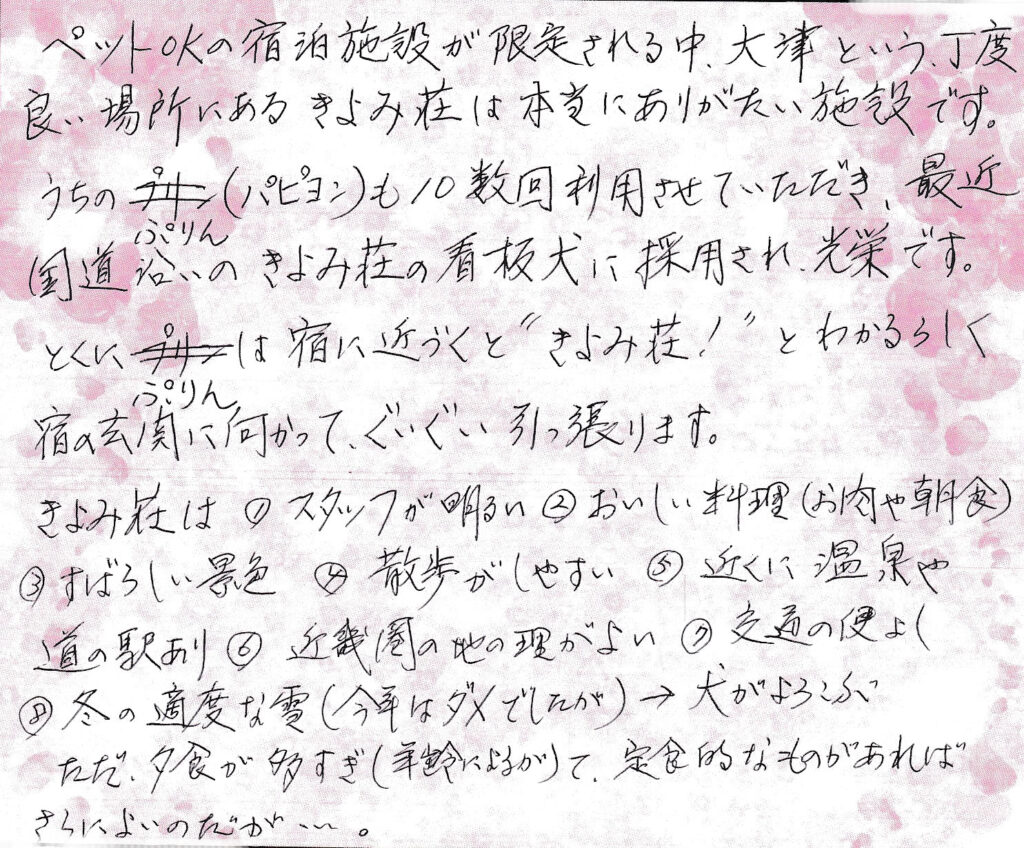 ペットOKの宿泊施設が限定される中、大津という、丁度
良い場所にあるきよみ荘は本当にありがたい施設です。
うちのプリン(パピヨン)も10数回利用させていただき、最近
ぷりん
国道沿いのきよみ荘の看板犬に採用され、光栄です。
とくにプリンは宿に近づくと“きよみ荘!”とわかるらしく
ぷりん
宿の玄関に向かって、ぐいぐい引っ張ります。
きよみ荘は ①スタッフが明るい ②おいしい料理(お肉や朝食)
③すばらしい景色 ④散歩がしやすい ⑤近くに温泉や
道の駅あり ⑥近畿圏の地の理がよい ⑦交通の便よく
⑧冬の適度な雪(今年はダメでしたが)→犬がよろこぶ
ただ、夕食が多すぎ(年齢によるが)て、定食的なものがあれば
さらによいのだが…。